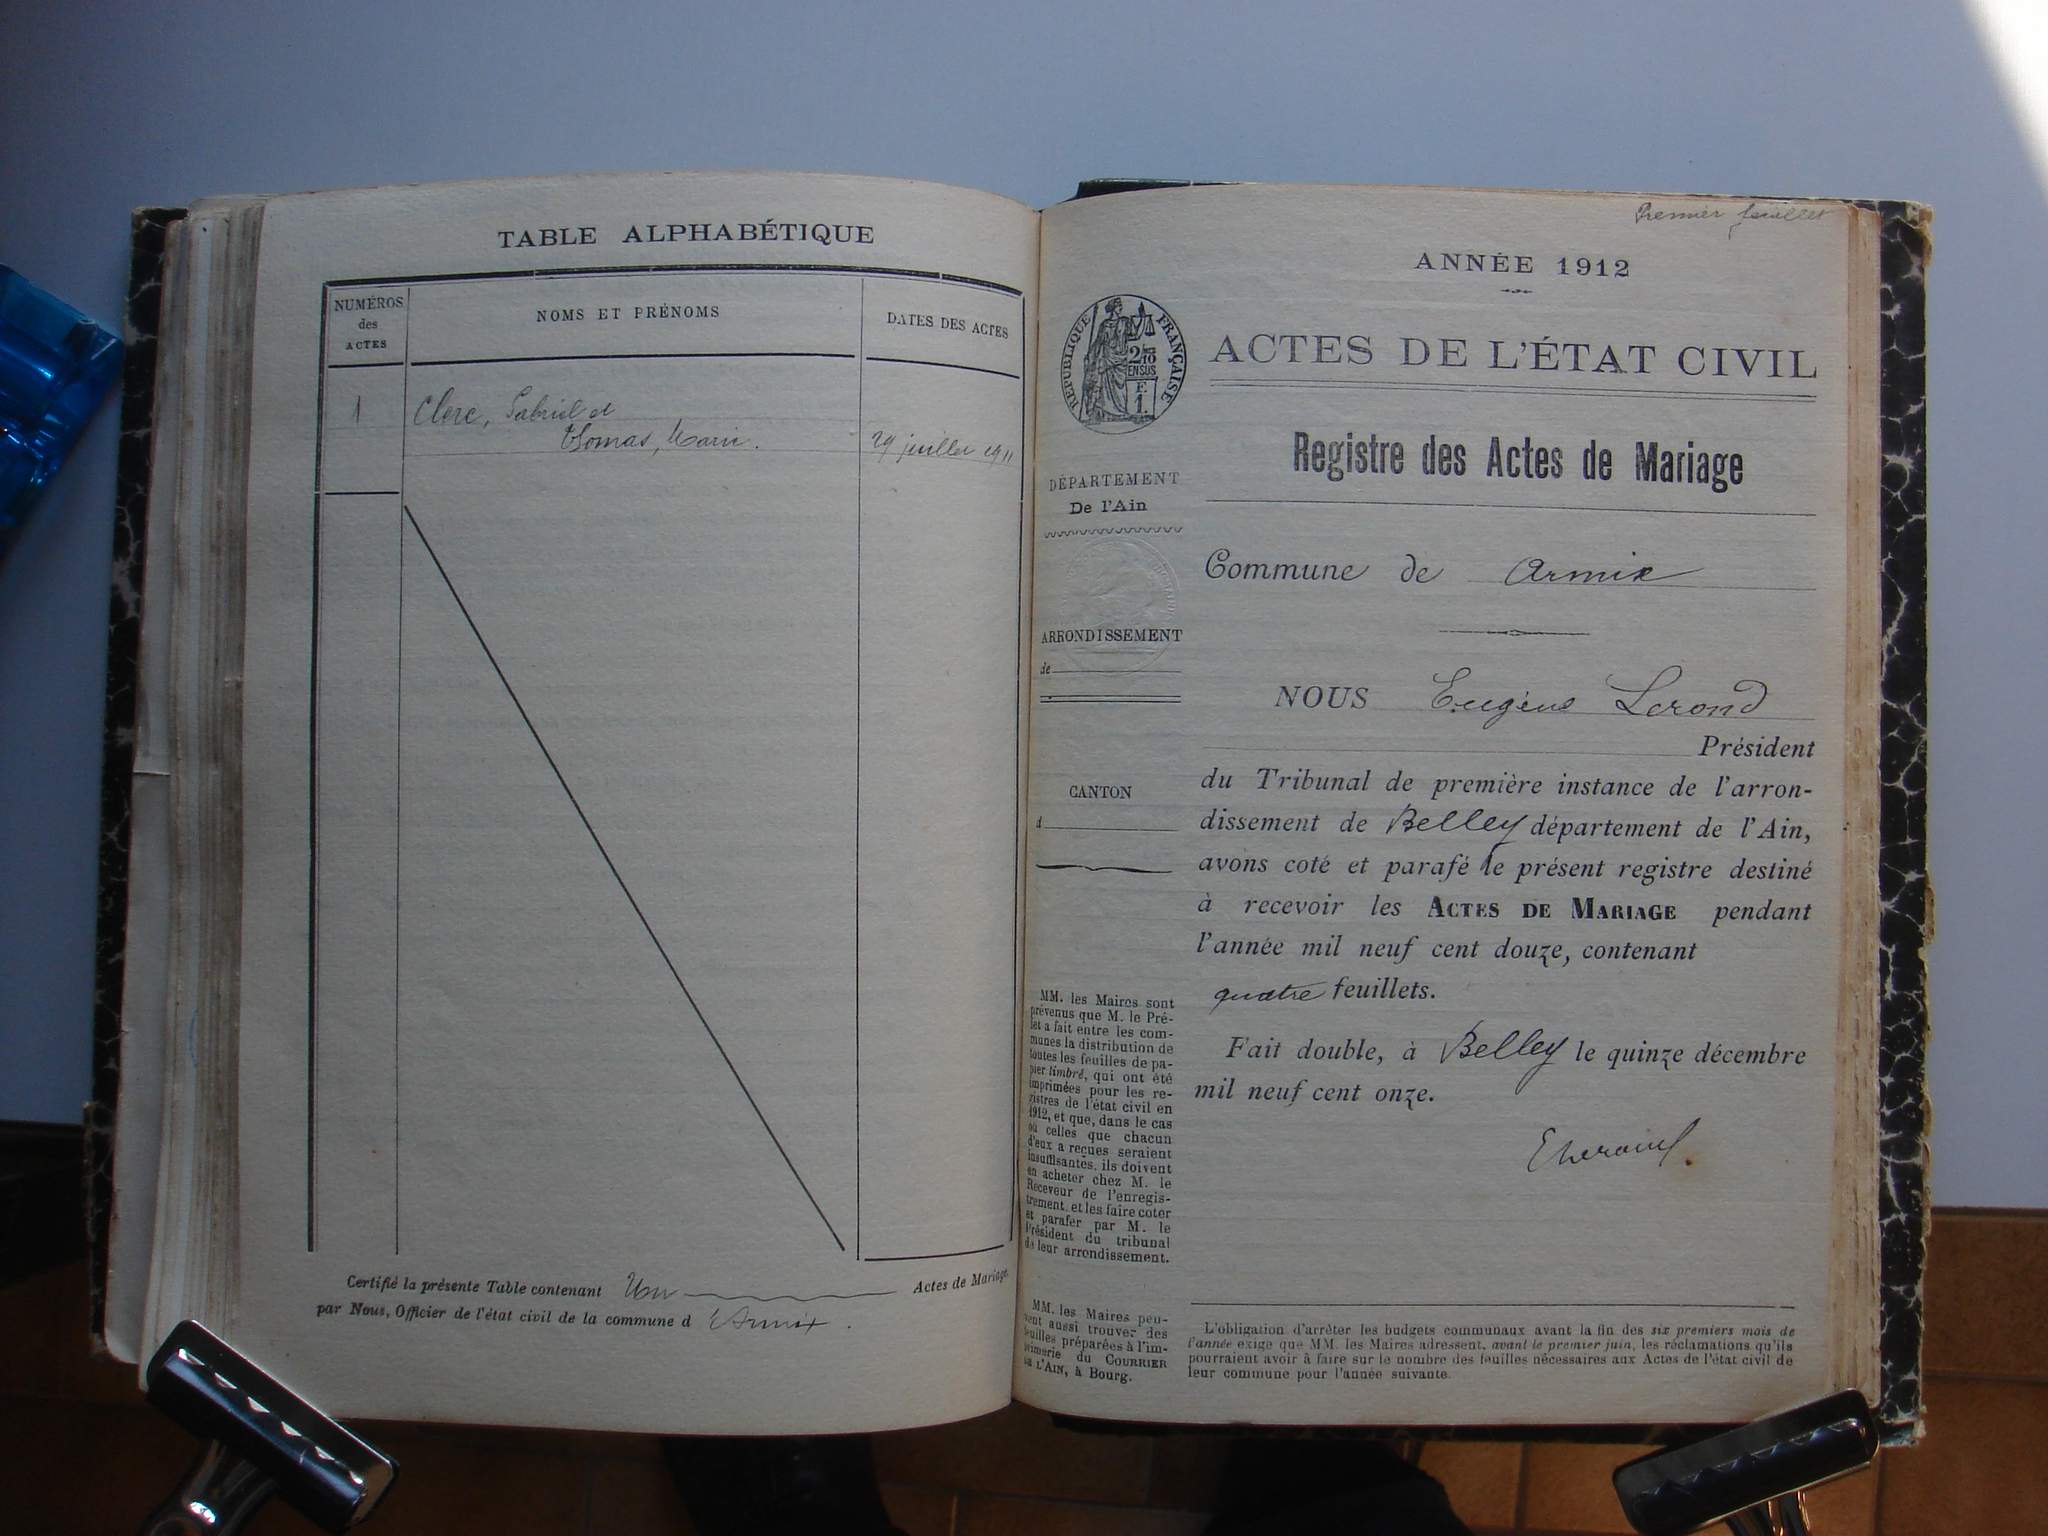 TABLE ALPHABÉTIQUE
NUMÉROS
des
ACTES
NOMS ET PRÉNOMS
DATES DES ACTES
1
Clerc, Gabriel et
Thomas, Marie.
29 juillet 1911
Certifié la présente Table contenant Un Actes de Mariage,
par Nous, Officier de l'état civil de la commune d'Armix.
Premier feuillet
ANNÉE 1912
RÉPUBLIQUE FRANÇAISE
2/10
EN SUS
F.
1.
ACTES DE L'ÉTAT CIVIL
Registre des Actes de Mariage
DÉPARTEMENT
De l'Ain
Commune de Armix
ARRONDISSEMENT
de
NOUS Eugène Lerond
Président
du Tribunal de première instance de l'arron-
dissement de Belley département de l'Ain,
avons coté et parafé le présent registre destiné
à recevoir les ACTES DE MARIAGE pendant
l'année mil neuf cent douze, contenant
quatre feuillets.
Fait double, à Belley le quinze décembre
mil neuf cent onze.
CANTON
d
MM. les Maires sont
prévenus que M. le Pré-
fet a fait entre les com-
munes la distribution de
toutes les feuilles de pa-
pier timbré, qui ont été
imprimées pour les re-
gistres de l'état civil en
1912, et que, dans le cas
où celles que chacun
d'eux a reçues seraient
insuffisantes, ils doivent
en acheter chez M. le
Receveur de l'enregis-
trement, et les faire coter
et parafer par M. le
Président du tribunal
de leur arrondissement.
MM. les Maires peu-
vent aussi trouver des
feuilles préparées à l'im-
primerie du COURRIER
DE L'AIN, à Bourg.
L'obligation d'arrêter les budgets communaux avant la fin des six premiers mois de
l'année exige que MM. les Maires adressent, avant le premier juin, les réclamations qu'ils
pourraient avoir à faire sur le nombre des feuilles nécessaires aux Actes de l'état civil de
leur commune pour l'année suivante.